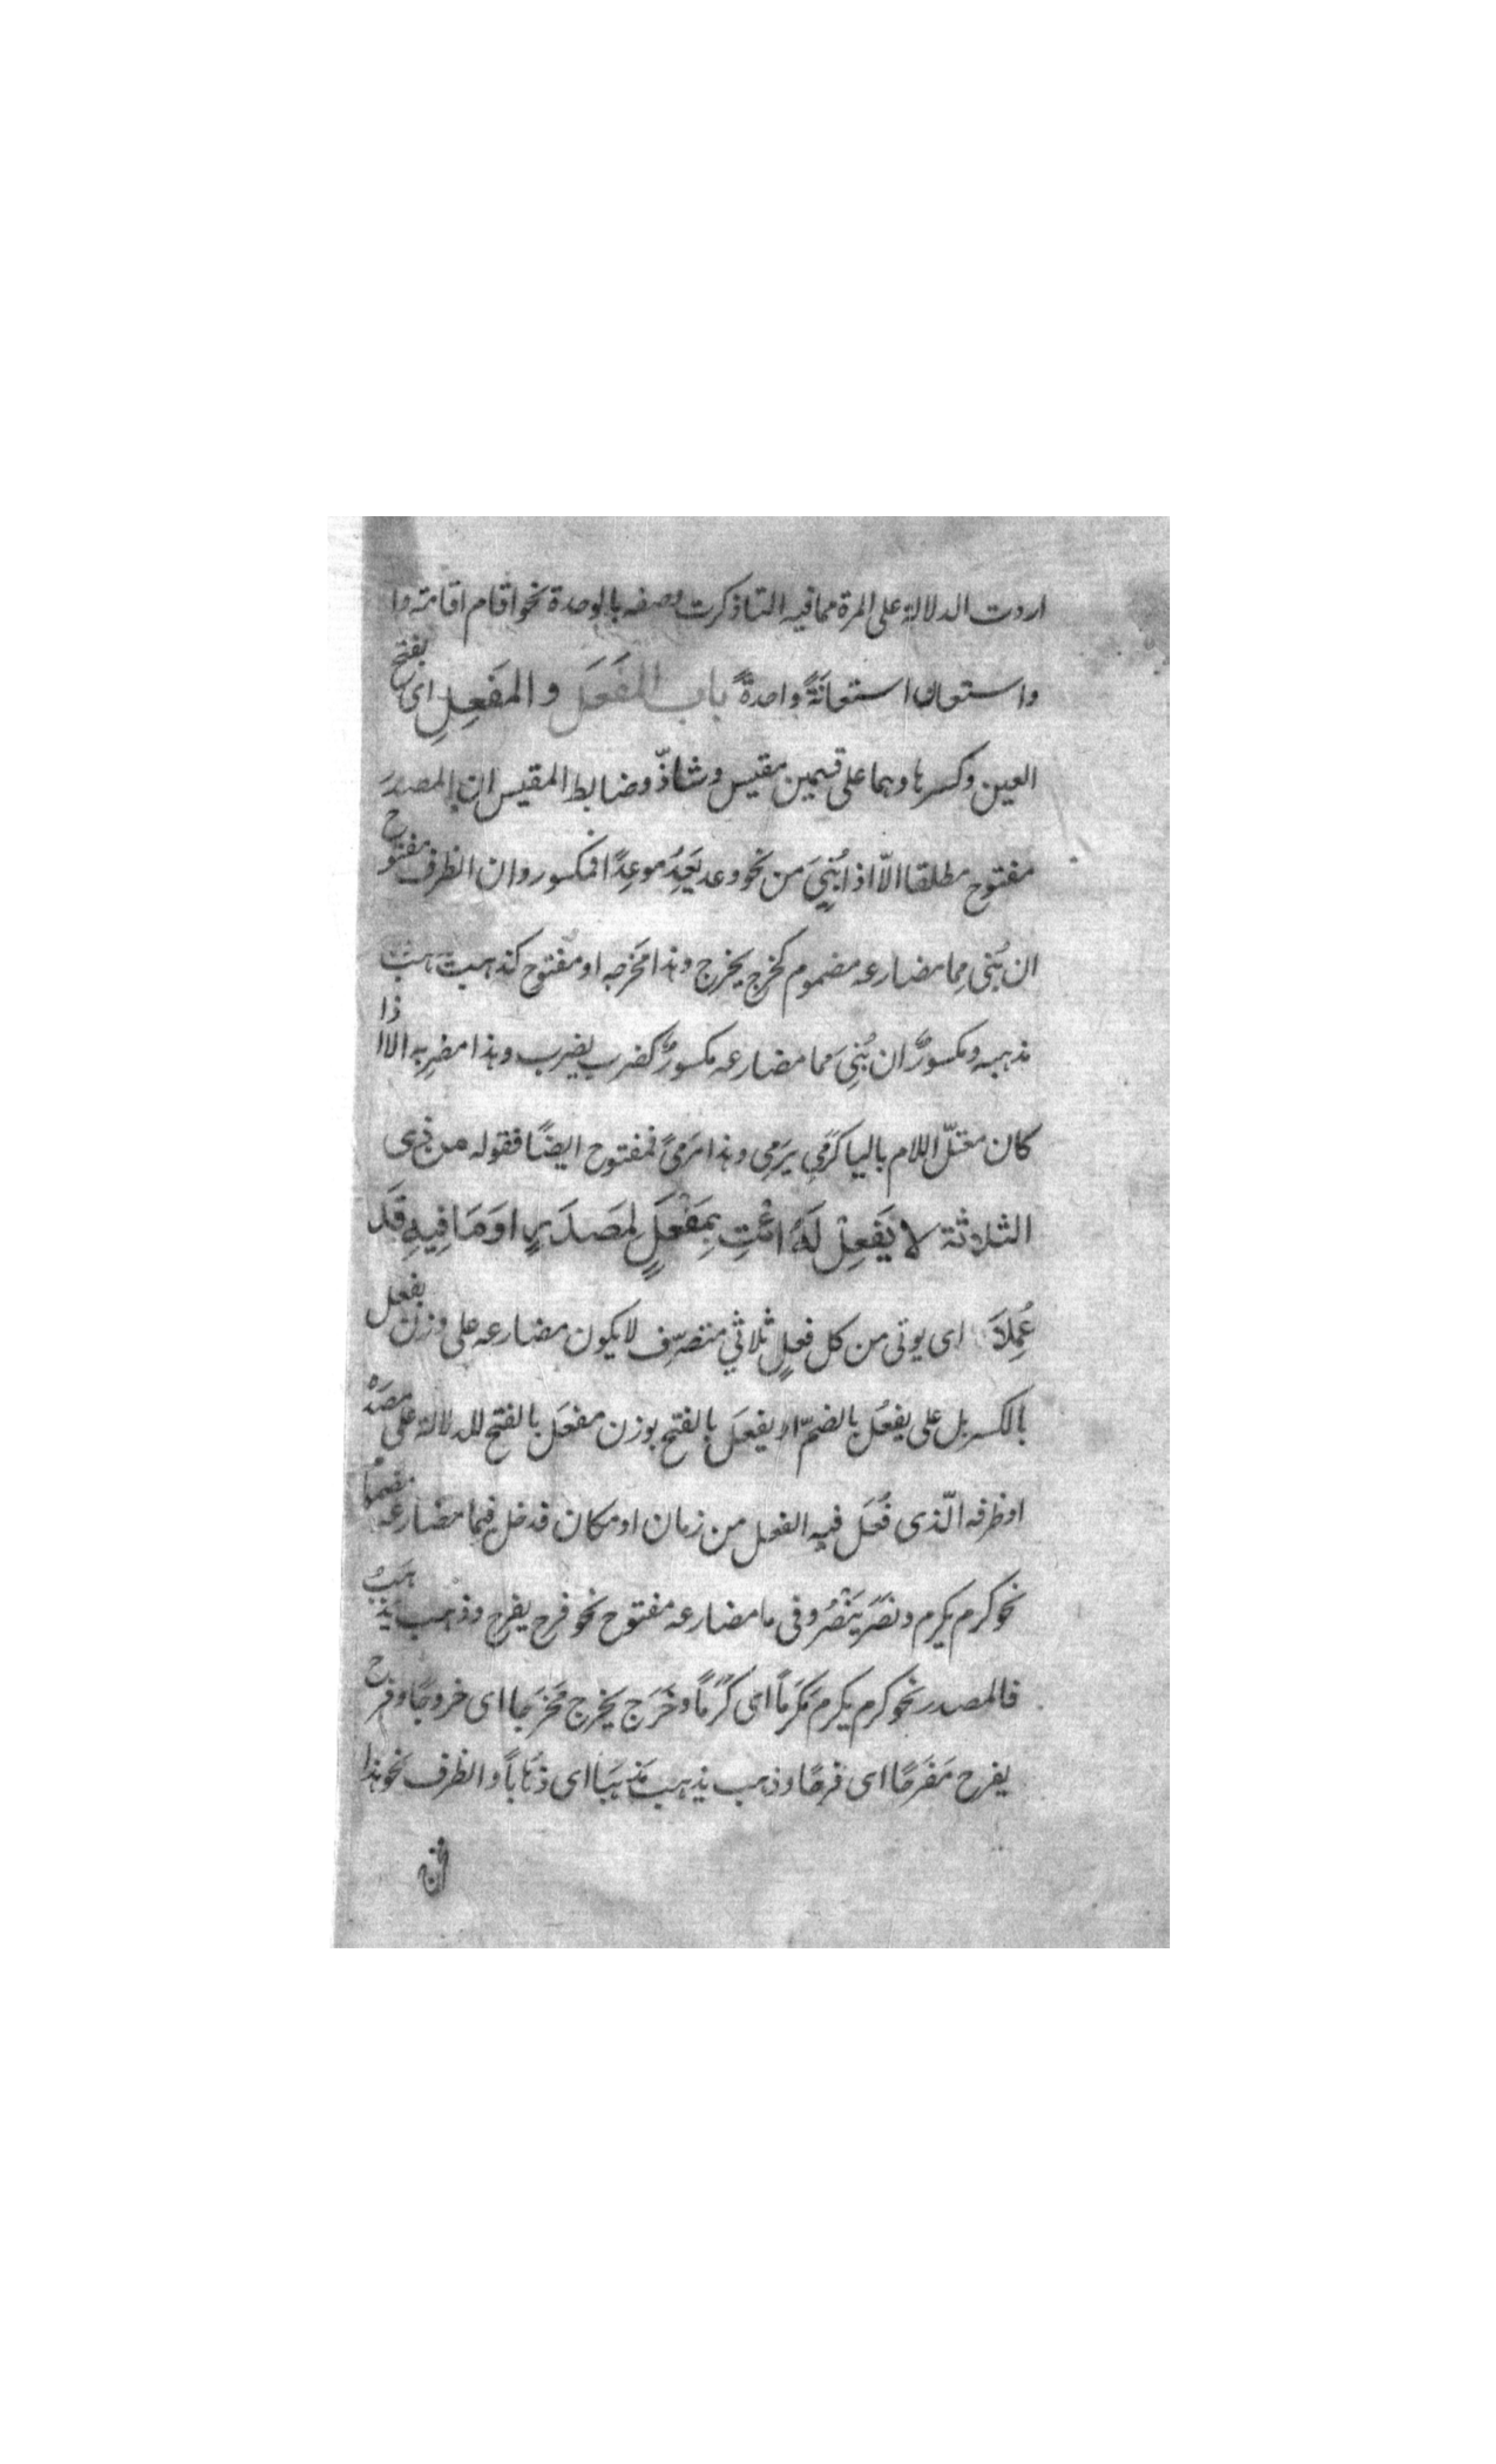 اردت الدلالة على المرة مما فيه التا ذكرت وصفه بالوحدة نحو اقام اقامة وا
واستعان استعانَةً واحدةً باب المَفعَل والمَفعِلِ اى بفتح
العين وكسرها وهما على قسمين مقيس وشاذّ وضابط المقيس ان المصدرَ
مفتوح مطلقا الّا اذا بُنِيَ من نحو وعد يَعِدُ موعِدًا فمكسور وان الظرف مفتوح
ان بُنى مِما مضارعه مضموم كخرج يخرج وهذا مَخرجه او مفتوح كذهب يذهب
مذهبه ومكسورٌ ان بُنِىَ مما مضارعه مكسورٌ كضرب يضرب وهذا مضرِبه الا اذا
كان معتلّ اللام باليا كرَمي يرَمِى وهذا مَرمىً فمفتوح ايضًا فقوله من ذى
الثلاثة لا يَفعِلْ لَهُ ائْتِ بِمَفْعَلٍ لِمَصدَرٍ اوَ مَا فِيهِ قَد
عُمِلاَ اى يوتى من كل فعلٍ ثلاثي متصرّف لا يكون مضارعه على وزن يفعل
بالكسر بل على يفعُل بالضمّ او يفعَل بالفتح بوزن مفعَل بالفتح للدلالة على مصدره
او ظرفه الّذى فُعَل فيه الفعل من زمان او مكان فدخل فيما مضارعه مضمومًا
نحو كرم يكرم ونصَر يَنْصُرُ وفى ما مضارعه مفتوح نحو فرح يفرح وذهب يذهَبُ
فالمصدر نحو كرم يكرم مَكرَماً اى كَرَمًا وخَرَج يخرج مَخرَجا اى خروجًا وفرح
يفرح مَفرَحًا اى فرحًا وذهب يذهب مَذهَبًا اى ذَهَاباً والظرف نحو هذا